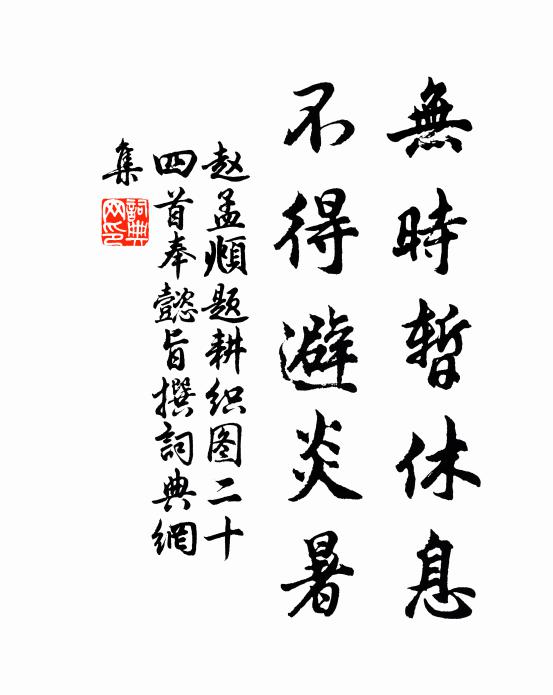 無時暫休息
不得避炎暑
赵孟頫题耕织图二十
四首奉懿旨撰詞典網
集
詞典
网印